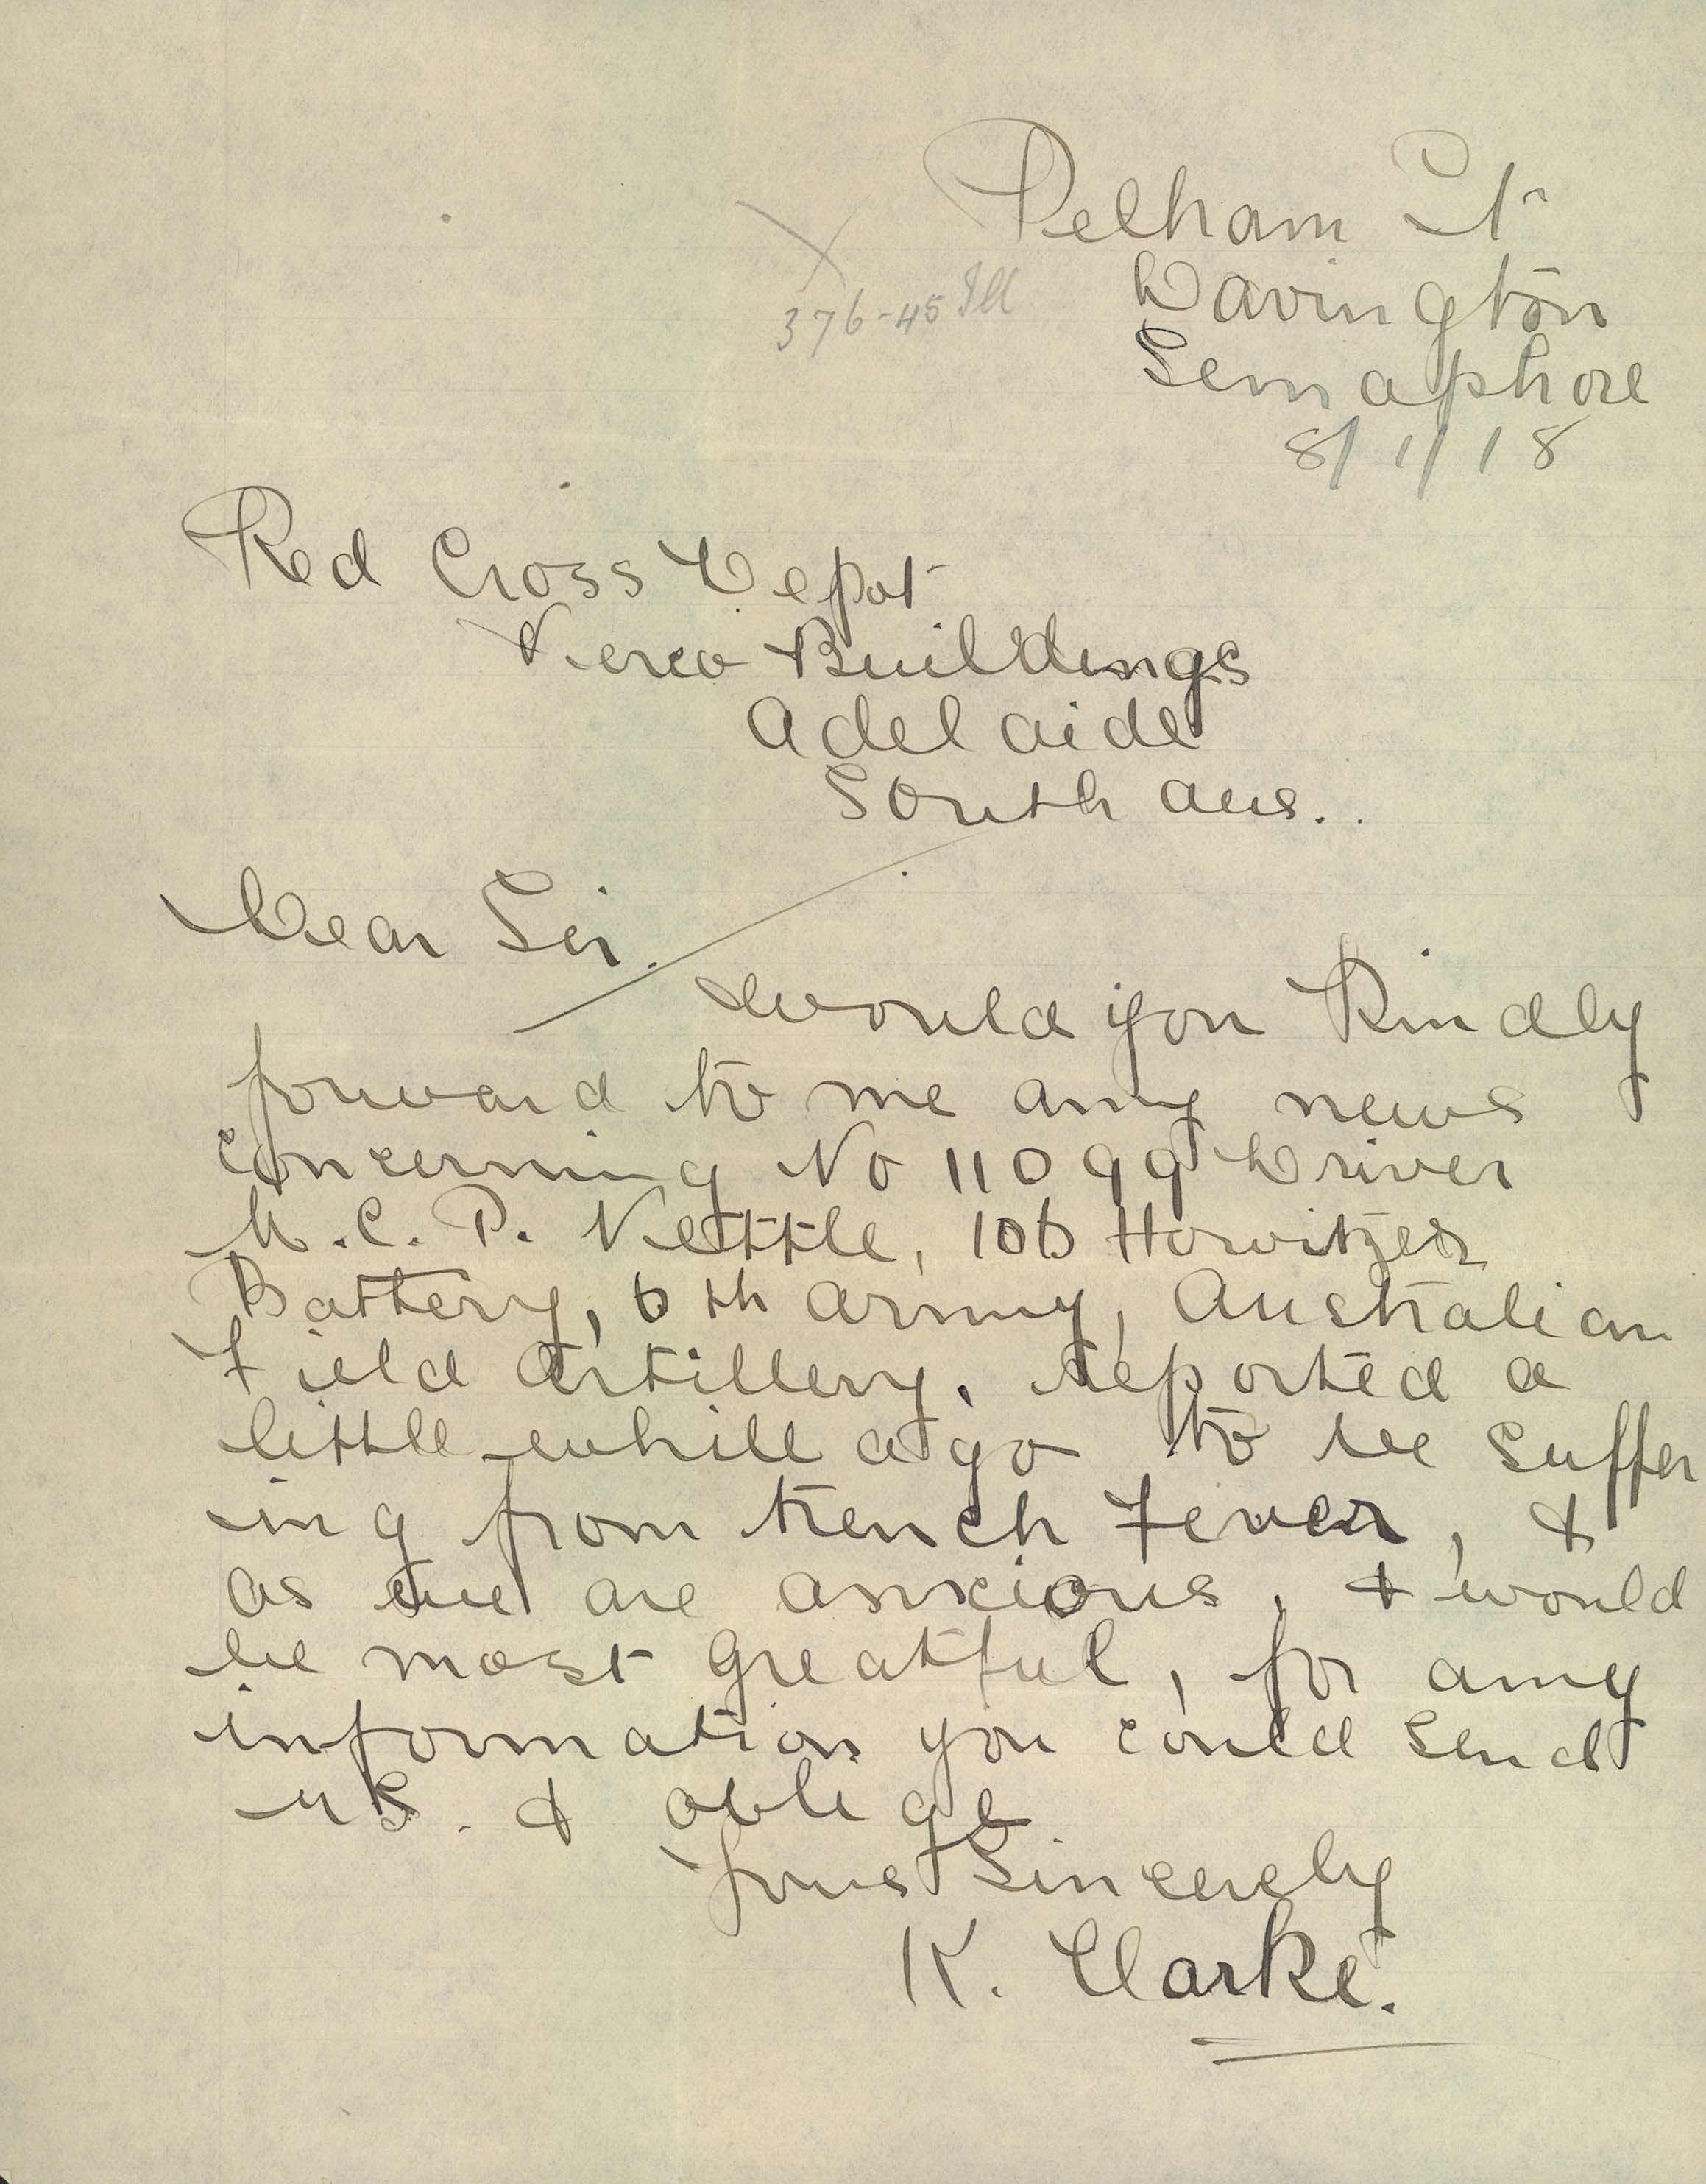 Pelham St
Davington
Semaphore
8/1/18
376-45
Red Cross Depot
Verco Buildings
Adelaide
South Aus..
Dear Sir.
Would you Kindly
forward to me any news
concerning No 11099 Driver
M.C.P. Nettle, 106 Howitzer
Battery, 6th Army, Australian
Field Artillery, reported a
little while ago to be suffer
ing from trench Fever, &
as we are anxious, & would
be most greatful, for any
information you could send
us. & oblige
Yours Sincerely
K. Clarke.